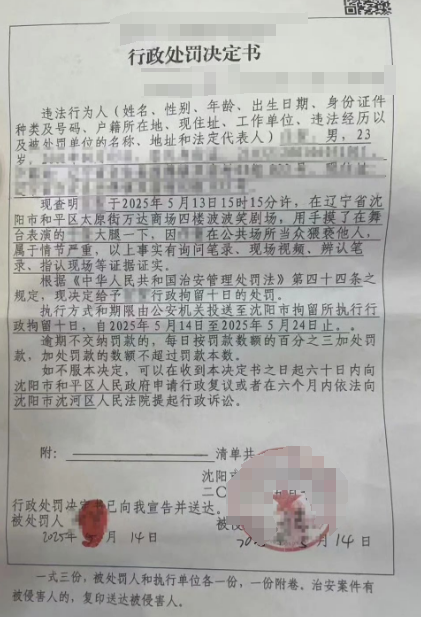 行政处罚决定书
违法行为人（姓名、性别、年龄、出生日期、身份证件
种类及号码、户籍所在地、现住址、工作单位、违法经历以
及被处罚单位的名称、地址和法定代表人） ，男，23
岁，
现查明 于2025年5月13日15时15分许，在辽宁省沈
阳市和平区太原街万达商场四楼波波笑剧场，用手摸了在舞
台表演的 大腿一下，因 在公共场所当众猥亵他人，
属于情节严重，以上事实有询问笔录、现场视频、辨认笔
录、指认现场等证据证实。
根据《中华人民共和国治安管理处罚法》第四十四条之
规定，现决定给予 行政拘留十日的处罚。
执行方式和期限由公安机关投送至沈阳市拘留所执行行
政拘留十日，自2025年5月14日至2025年5月24日止。。
逾期不交纳罚款的，每日按罚款数额的百分之三加处罚
款，加处罚款的数额不超过罚款本数。
如不服本决定，可以在收到本决定书之日起六十日内向
沈阳市和平区人民政府申请行政复议或者在六个月内依法向
沈阳市沈河区人民法院提起行政诉讼。
附： 清单共
沈阳市
二〇
行政处罚决定书已向我宣告并送达。
被处罚人 被侵
2025年5月14日 月14日
一式三份，被处罚人和执行单位各一份，一份附卷。治安案件有
被侵害人的，复印送达被侵害人。